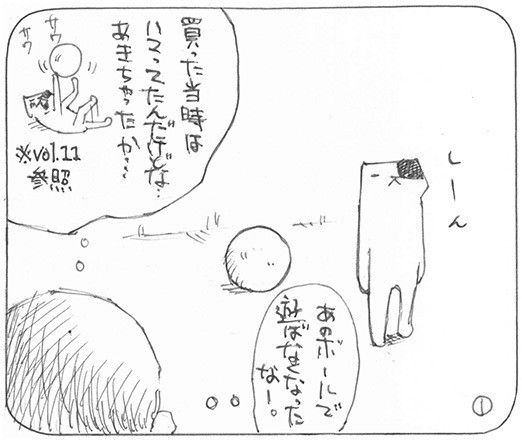 しーん
あのボールで
遊ばなくなった
なー。
買った当時は
ハマってたんだけどな…
あきちゃったか…
サワ
サワ
※vol.11
参照
①